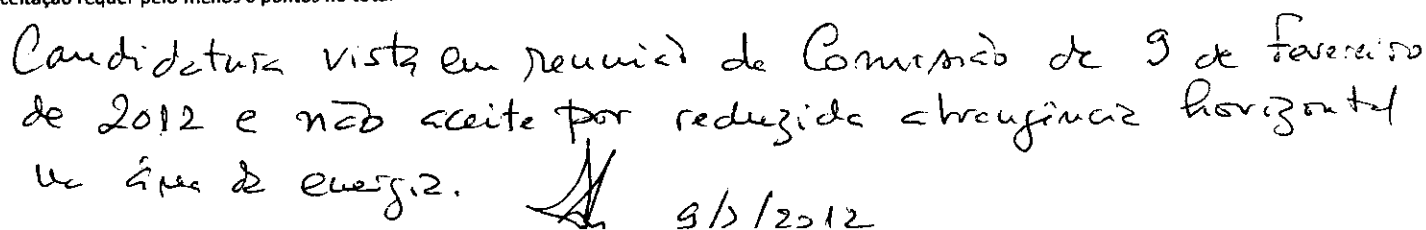 Candidatura vista em reunião de Comissão de 9 de fevereiro
de 2012 e não aceite por reduzida abrangência horizontal
na área de energia.
9/2/2012